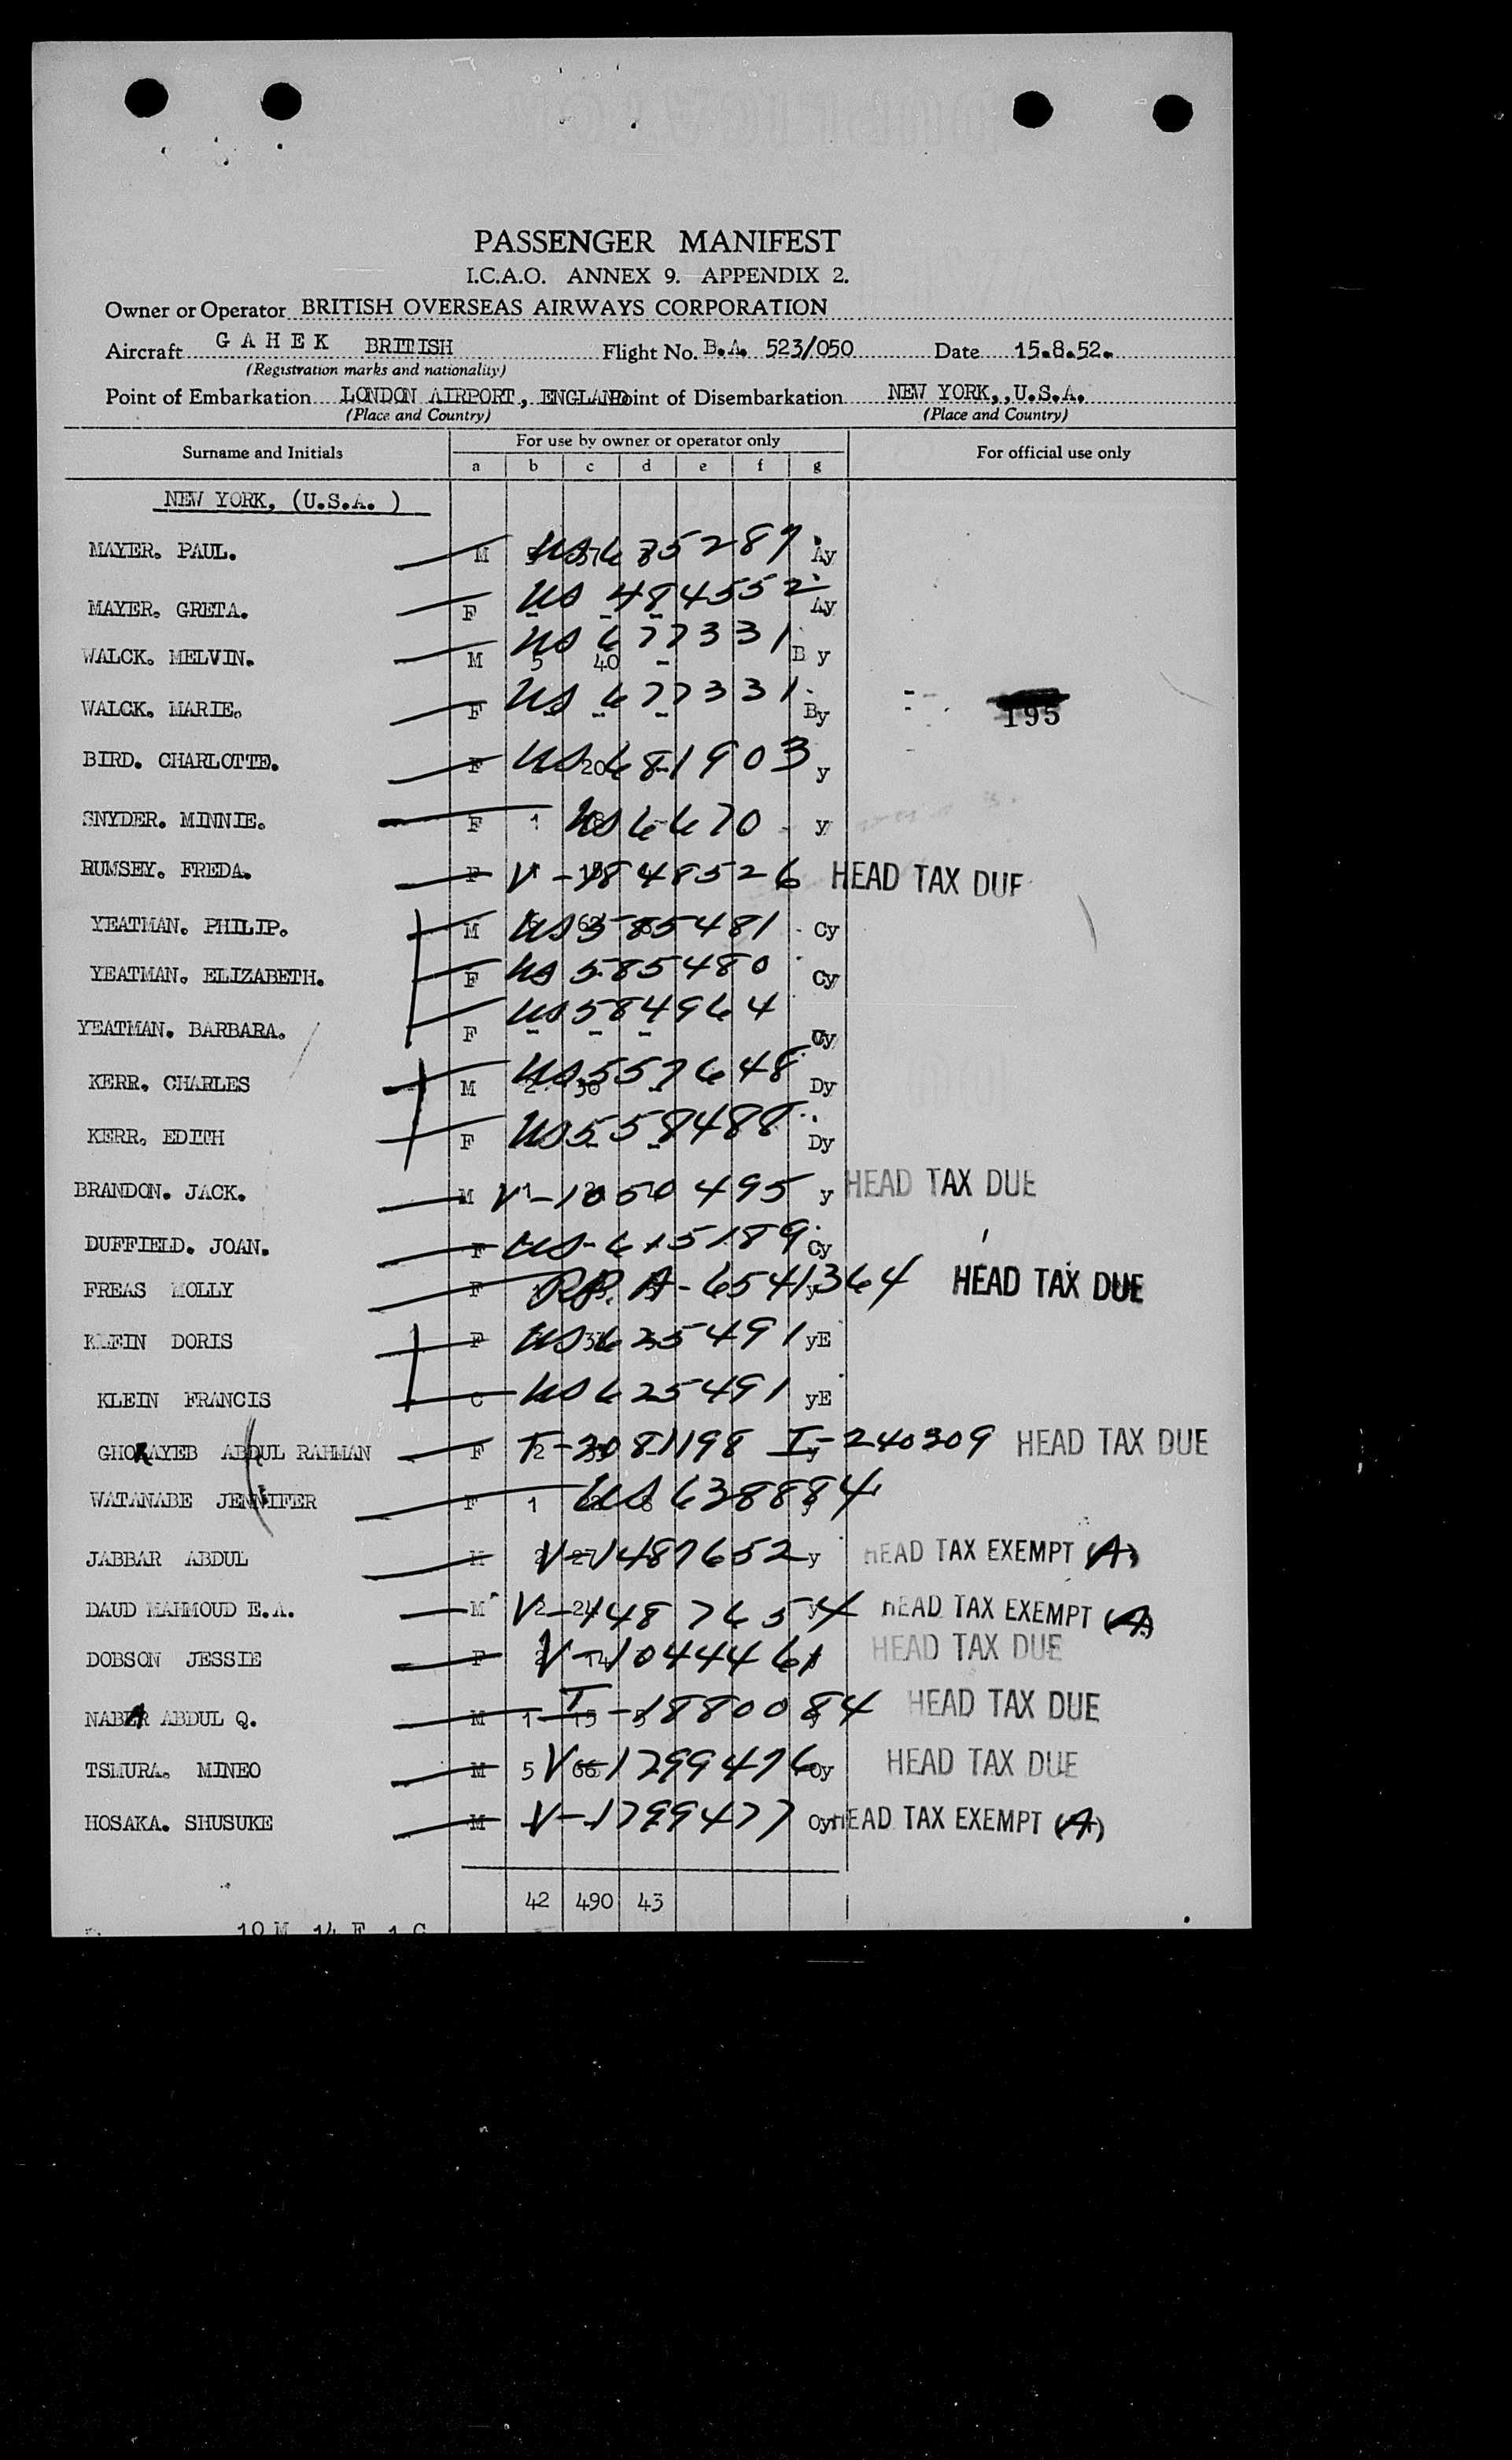 PASSENGER MANIFEST
I.C.A.O. ANNEX 9. APPENDIX 2.
Owner or Operator BRITISH OVERSEAS AIRWAYS CORPORATION
Aircraft G A H E K BRITISH Flight No. B.A. 523/050 Date 15.8.52.
(Registration marks and nationality)
Point of Embarkation LONDON AIRPORT, ENGLAND Point of Disembarkation NEW YORK,,U.S.A.
(Place and Country) (Place and Country)
Surname and Initials For use by owner or operator only For official use only
a b c d e f g
NEW YORK, (U.S.A. )
MAYER. PAUL. M US 635287 Ay
MAYER. GRETA. F US 484552 - - - Ay
WALCK. MELVIN. M US 677331 5 40 - B y
WALCK. MARIE. F US 677331 - - - By
195
BIRD. CHARLOTTE. F US 681903 20 y
SNYDER. MINNIE. F 1 US 6670 y
RUMSEY. FREDA. F V-1848526 HEAD TAX DUE
YEATMAN. PHILIP. M US 585481 Cy
YEATMAN. ELIZABETH. F US 585480 Cy
YEATMAN. BARBARA. F US 584964 - - - Cy
KERR. CHARLES M US 557648 2 30 - Dy
KERR. EDITH F US 558488 - - Dy
BRANDON. JACK. M V-1050495 y HEAD TAX DUE
DUFFIELD. JOAN. F US-615189 Cy
FREAS MOLLY F RP. A-6541364 y HEAD TAX DUE
KLEIN DORIS F US 625491 yE
KLEIN FRANCIS C US 625491 yE
GHORAYEB ABDUL RAHMAN F T-3081198 I-240309 y HEAD TAX DUE
WATANABE JENNIFER F 1 US 638884 y
JABBAR ABDUL M V-1487652 y HEAD TAX EXEMPT (A)
DAUD MAHMOUD E.A. M V-1487654 2 24 y HEAD TAX EXEMPT (A)
DOBSON JESSIE F V-1044461 HEAD TAX DUE
NABAR ABDUL Q. M 1 15 T-1880084 y HEAD TAX DUE
TSMURA. MINEO M 5 66 V-1299476 Oy HEAD TAX DUE
HOSAKA. SHUSUKE M V-1799477 Oy HEAD TAX EXEMPT (A)
42 490 43
10 M 14 F 1 C